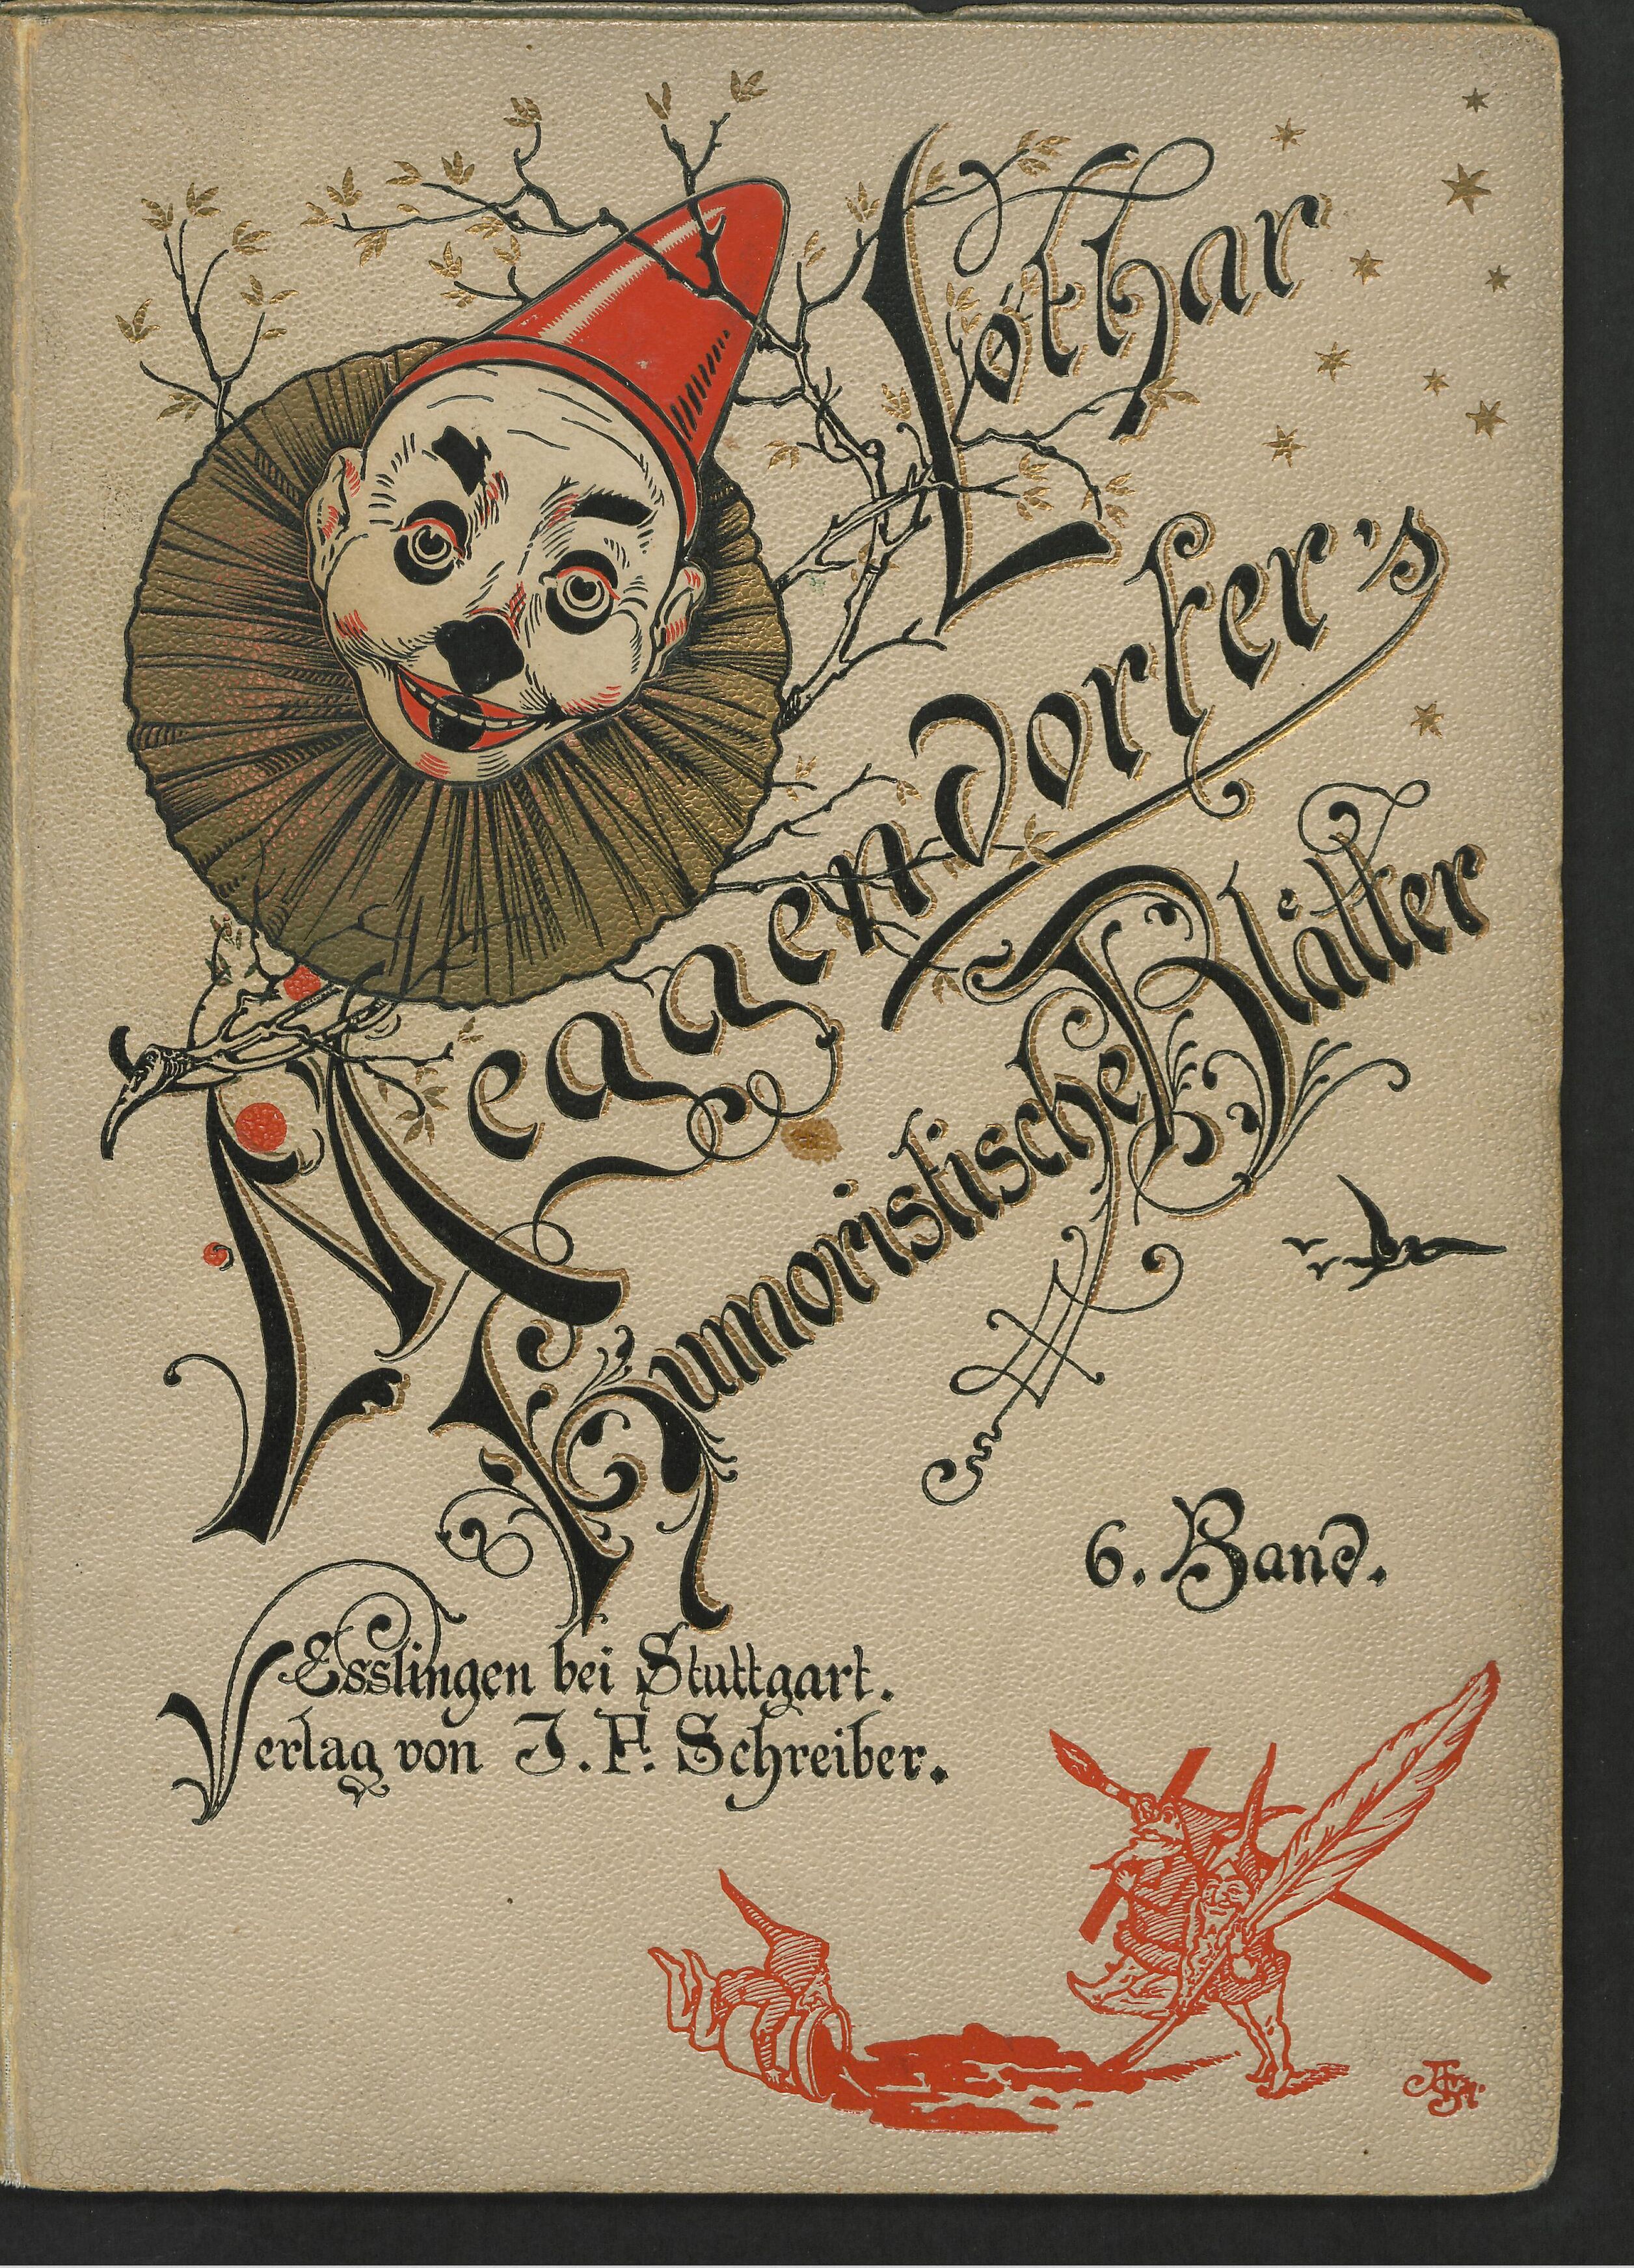 Lothar
Meggendorfer's
Humoristische Blätter
6. Band.
Esslingen bei Stuttgart.
Verlag von J. F. Schreiber.